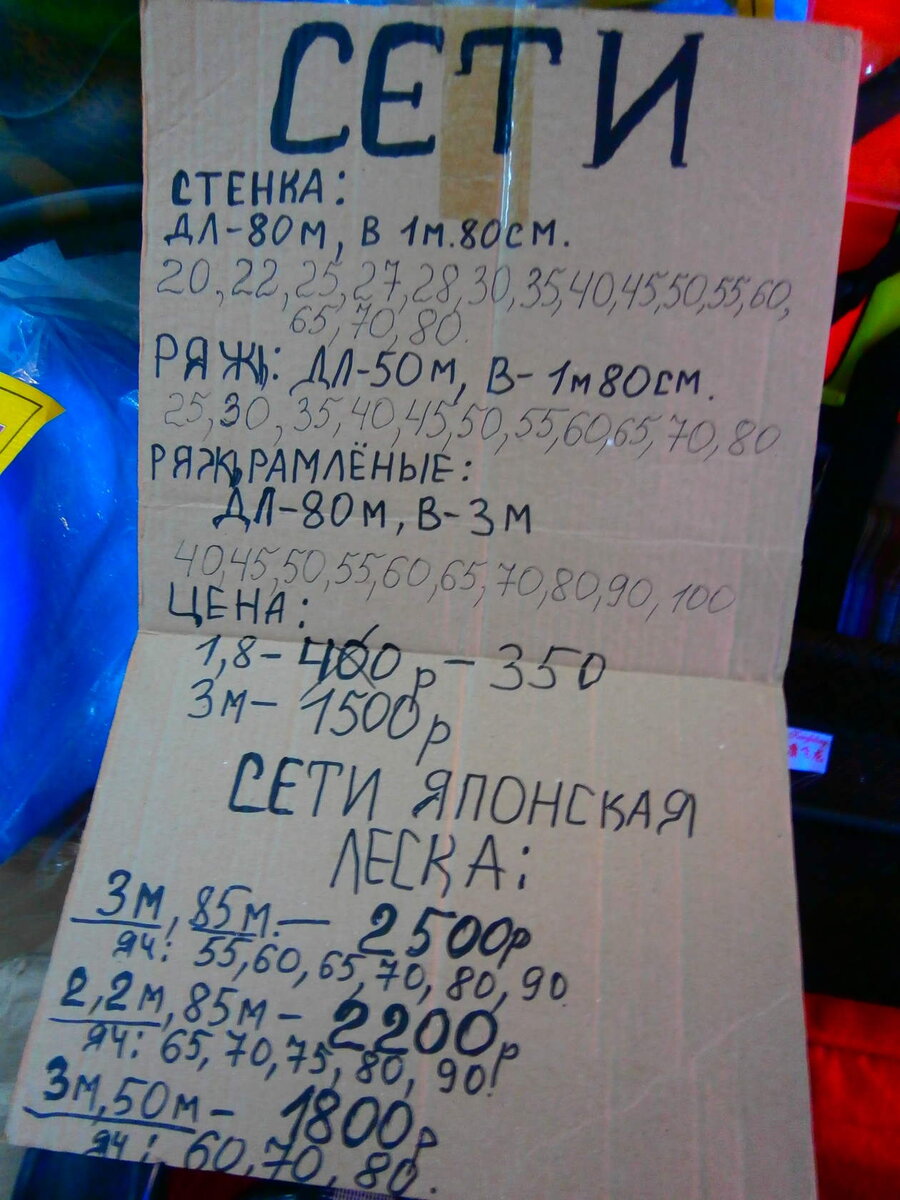 СЕТИ
СТЕНКА:
ДЛ-80М, В 1М.80СМ.
20, 22, 25, 27, 28, 30, 35, 40, 45, 50, 55, 60,
65, 70, 80.
РЯЖЬ: ДЛ-50М, В- 1М80СМ.
25, 30, 35, 40, 45, 50, 55, 60, 65, 70, 80
РЯЖЬ РАМЛЁНЫЕ:
ДЛ-80М, В-3М
40, 45, 50, 55, 60, 65, 70, 80, 90, 100
ЦЕНА:
1,8- 400р - 350
3М- 1500р
СЕТИ ЯПОНСКАЯ
ЛЕСКА:
3М, 85М. — 2500р
ЯЧ: 55, 60, 65, 70, 80, 90
2,2М, 85М - 2200р
ЯЧ: 65, 70, 75, 80, 90.
3М, 50М - 1800р
ЯЧ: 60, 70, 80.